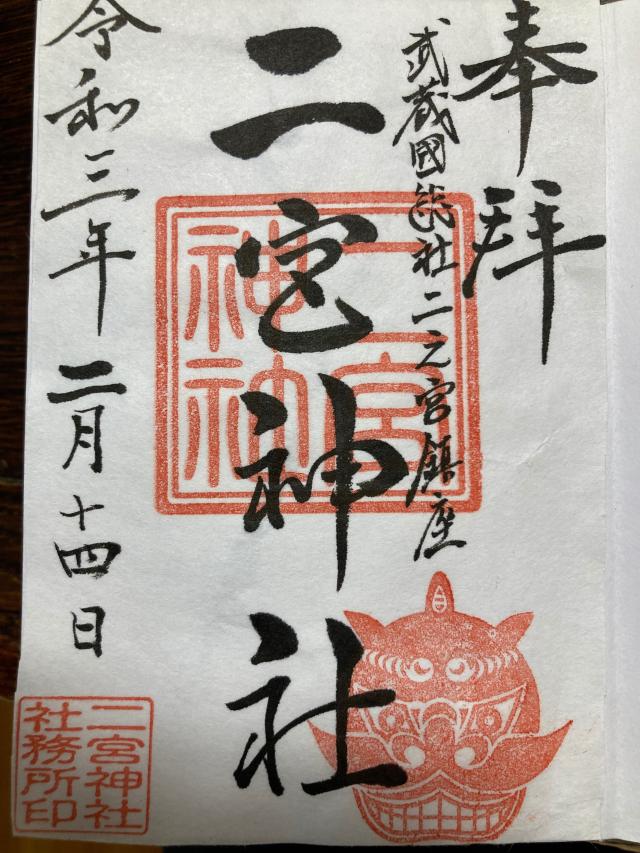 奉拝
武蔵國総社二之宮鎮座
二宮神社
令和三年二月十四日
二宮神社
社務所印